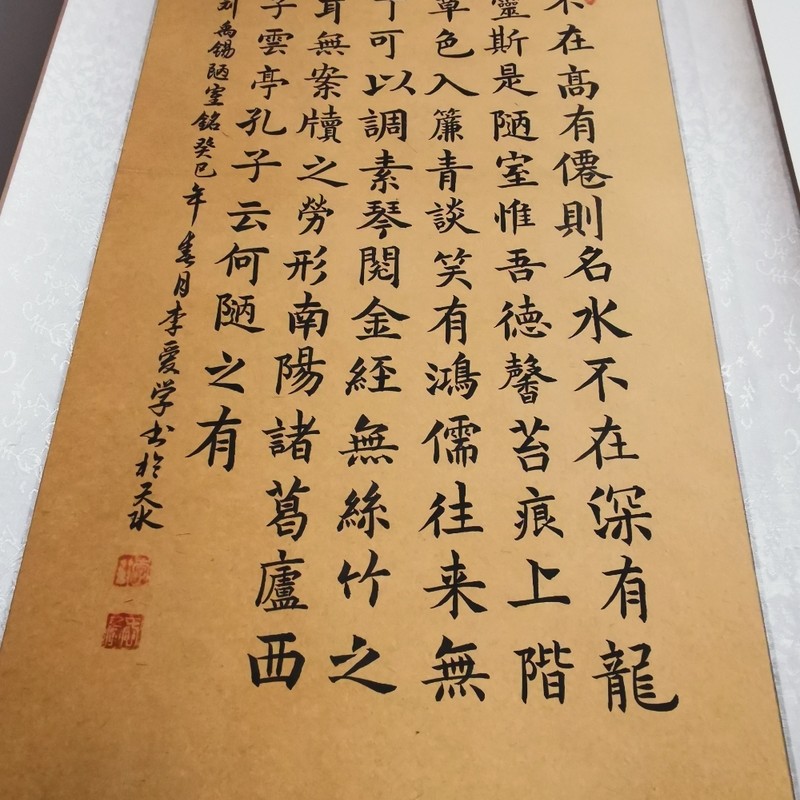 不在髙有僊則名水不在深有龍
靈斯是陋室惟吾德馨苔痕上階
草色入簾青談笑有鴻儒往来無
丁可以調素琴閲金経無絲竹之
耳無案牘之勞形南陽諸葛廬西
子雲亭孔子云何陋之有
刘禹锡陋室铭癸巳年春月李爱学书於天水